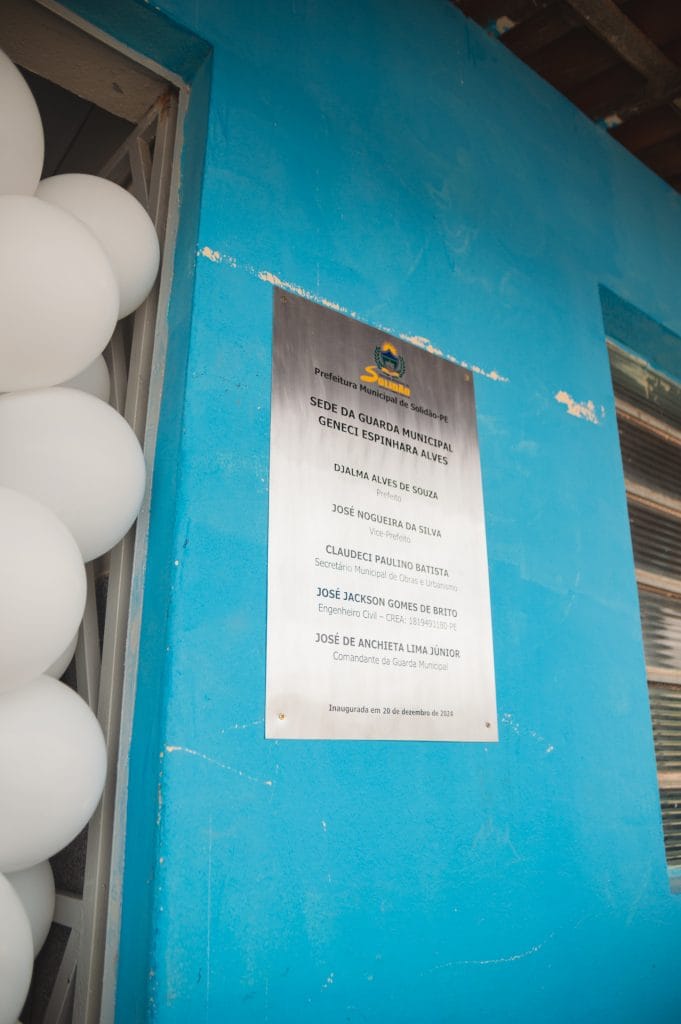 SOLIDÃO
Prefeitura Municipal de Solidão-PE
SEDE DA GUARDA MUNICIPAL
GENECI ESPINHARA ALVES
DJALMA ALVES DE SOUZA
Prefeito
JOSÉ NOGUEIRA DA SILVA
Vice-Prefeito
CLAUDECI PAULINO BATISTA
Secretário Municipal de Obras e Urbanismo
JOSÉ JACKSON GOMES DE BRITO
Engenheiro Civil – CREA: 1819491180-PE
JOSÉ DE ANCHIETA LIMA JÚNIOR
Comandante da Guarda Municipal
Inaugurada em 20 de dezembro de 2024